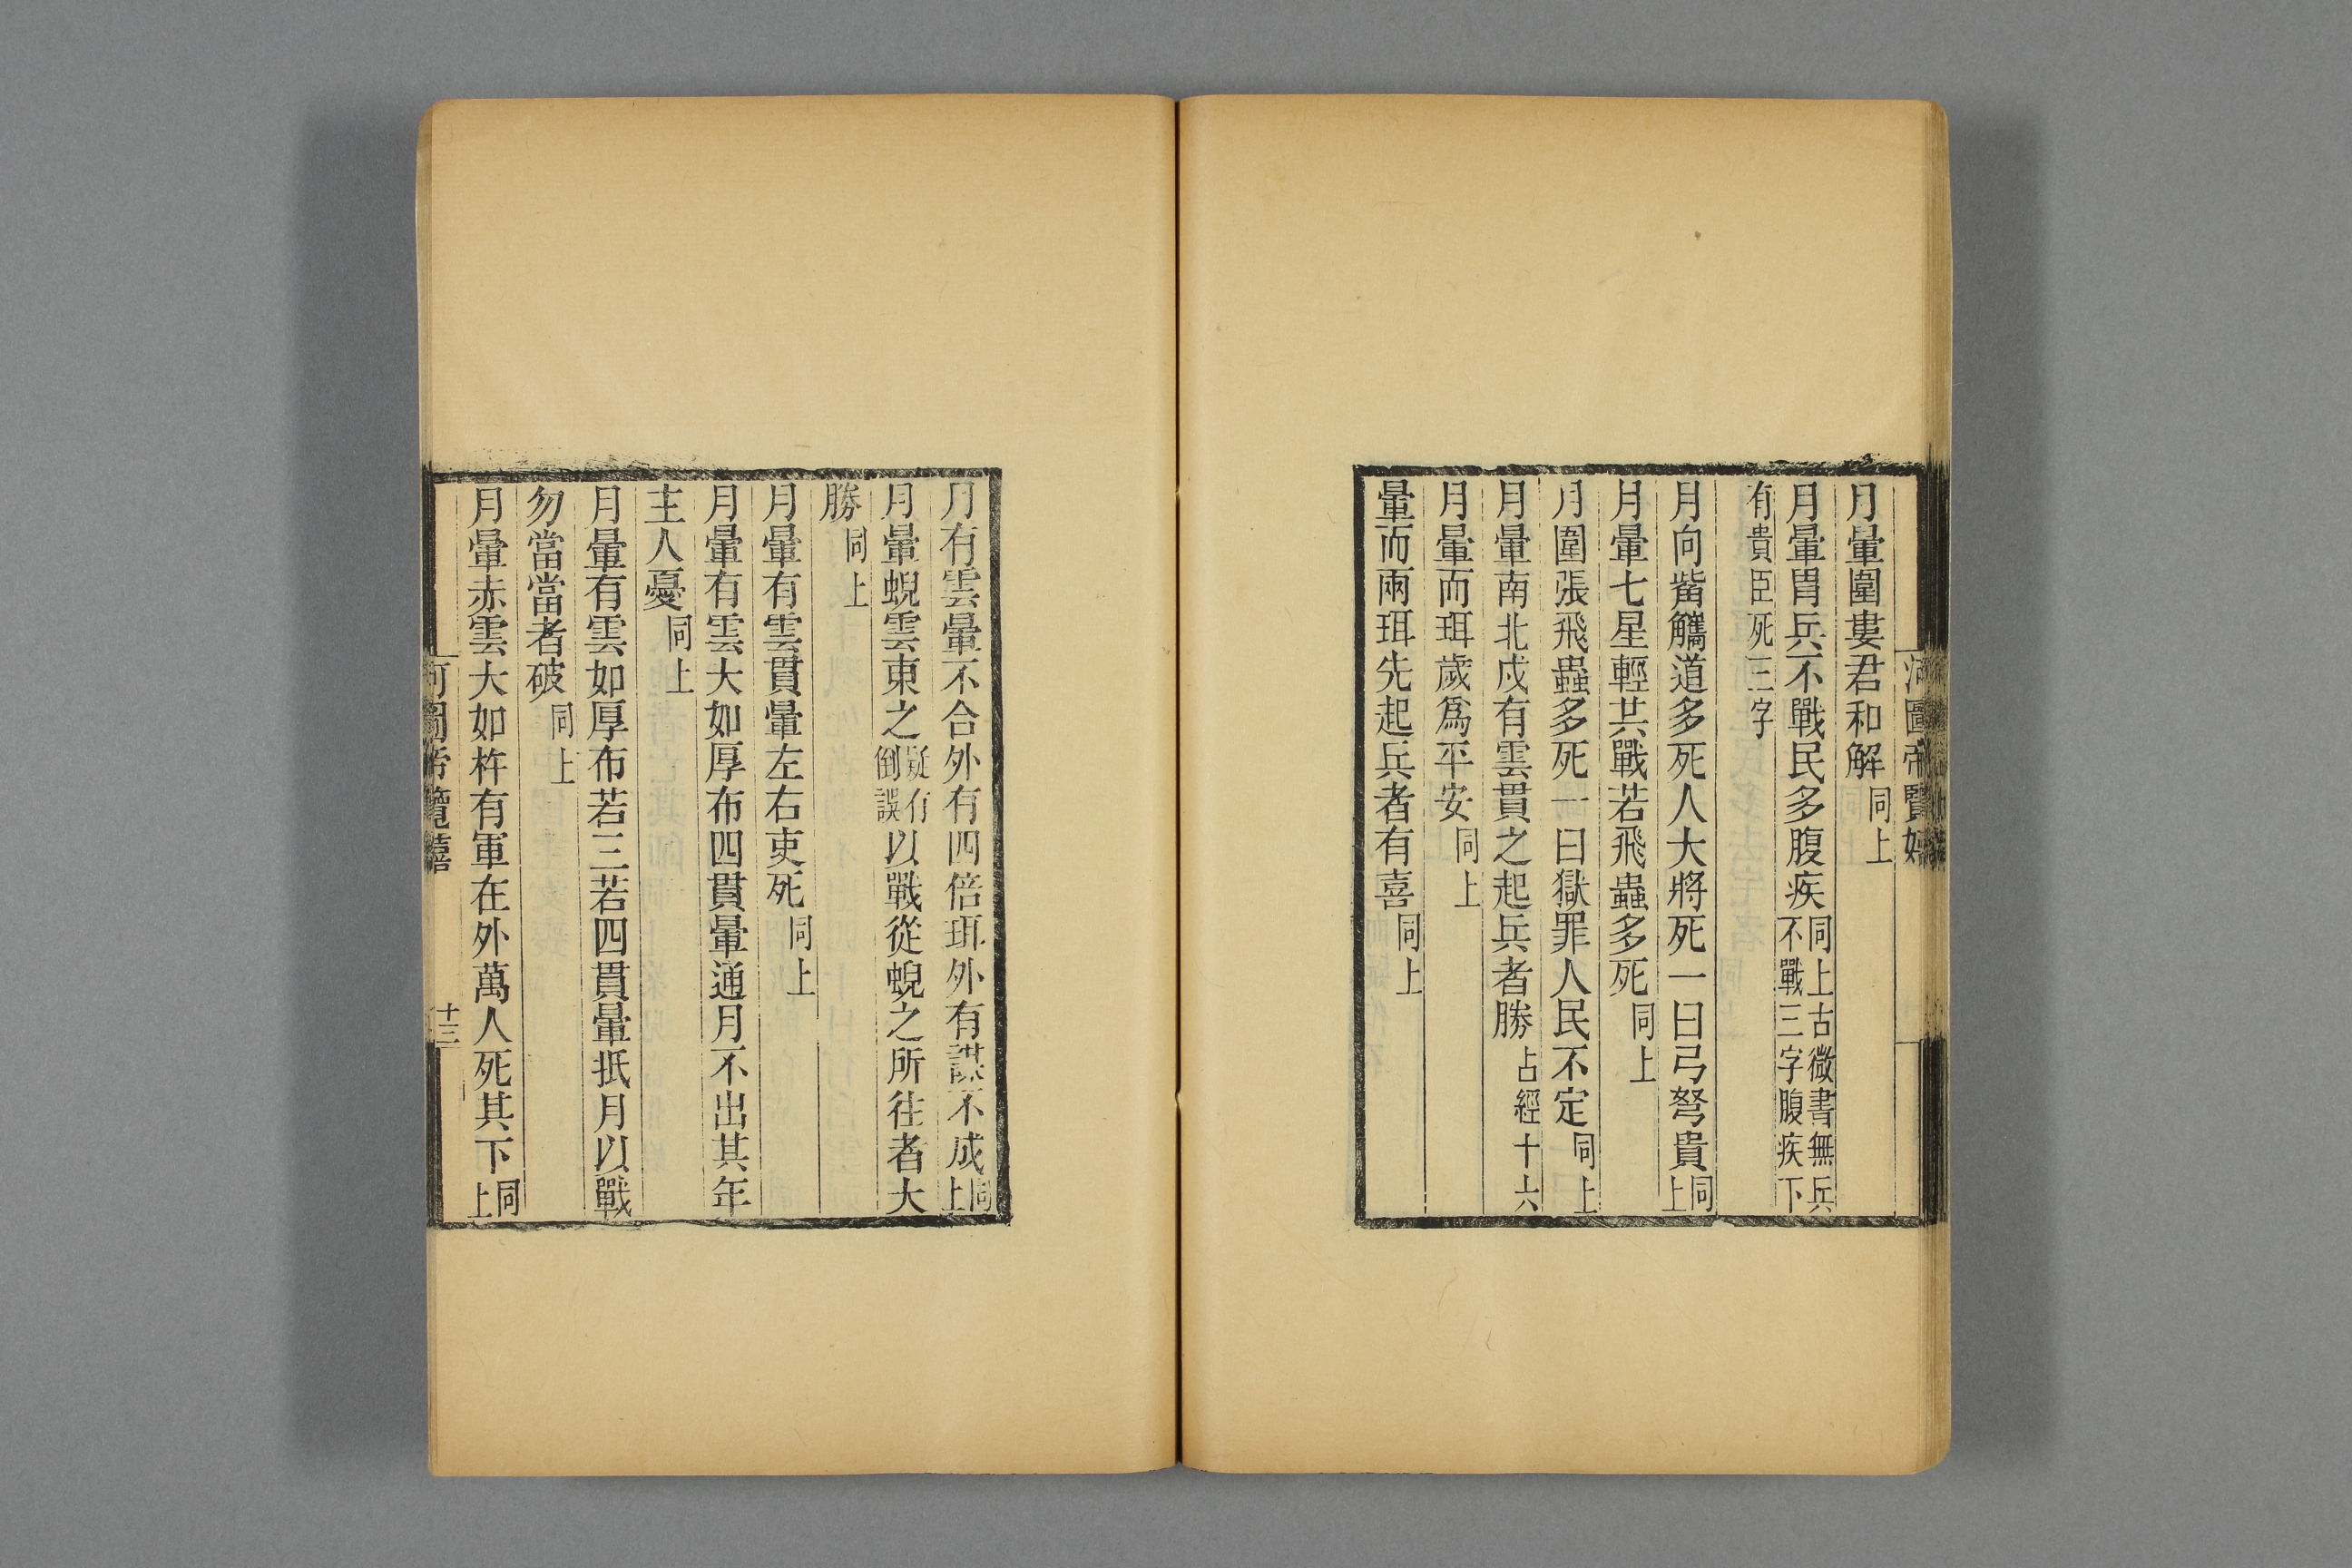 月暈圍婁君和解同上
月暈胃兵不戰民多腹疾同上古微書無兵不戰三字腹疾下
有貴臣死三字
月向觜觿道多死人大將死一曰弓弩貴同上
月暈七星輕共戰若飛蟲多死同上
月圍張飛蟲多死一曰獄罪人民不定同上
月暈南北戍有雲貫之起兵者勝占經十六
月暈而珥歲爲平安同上
暈而兩珥先起兵者有喜同上
月有雲暈不合外有四倍珥外有謀不成同上
月暈蜺雲東之疑有倒誤以戰從蜺之所往者大
勝同上
月暈有雲貫暈左右吏死同上
月暈有雲大如厚布四貫暈通月不出其年
主人憂同上
月暈有雲如厚布若三若四貫暈抵月以戰
勿當當者破同上
月暈赤雲大如杵有軍在外萬人死其下同上
河圖帝覽嬉
十三